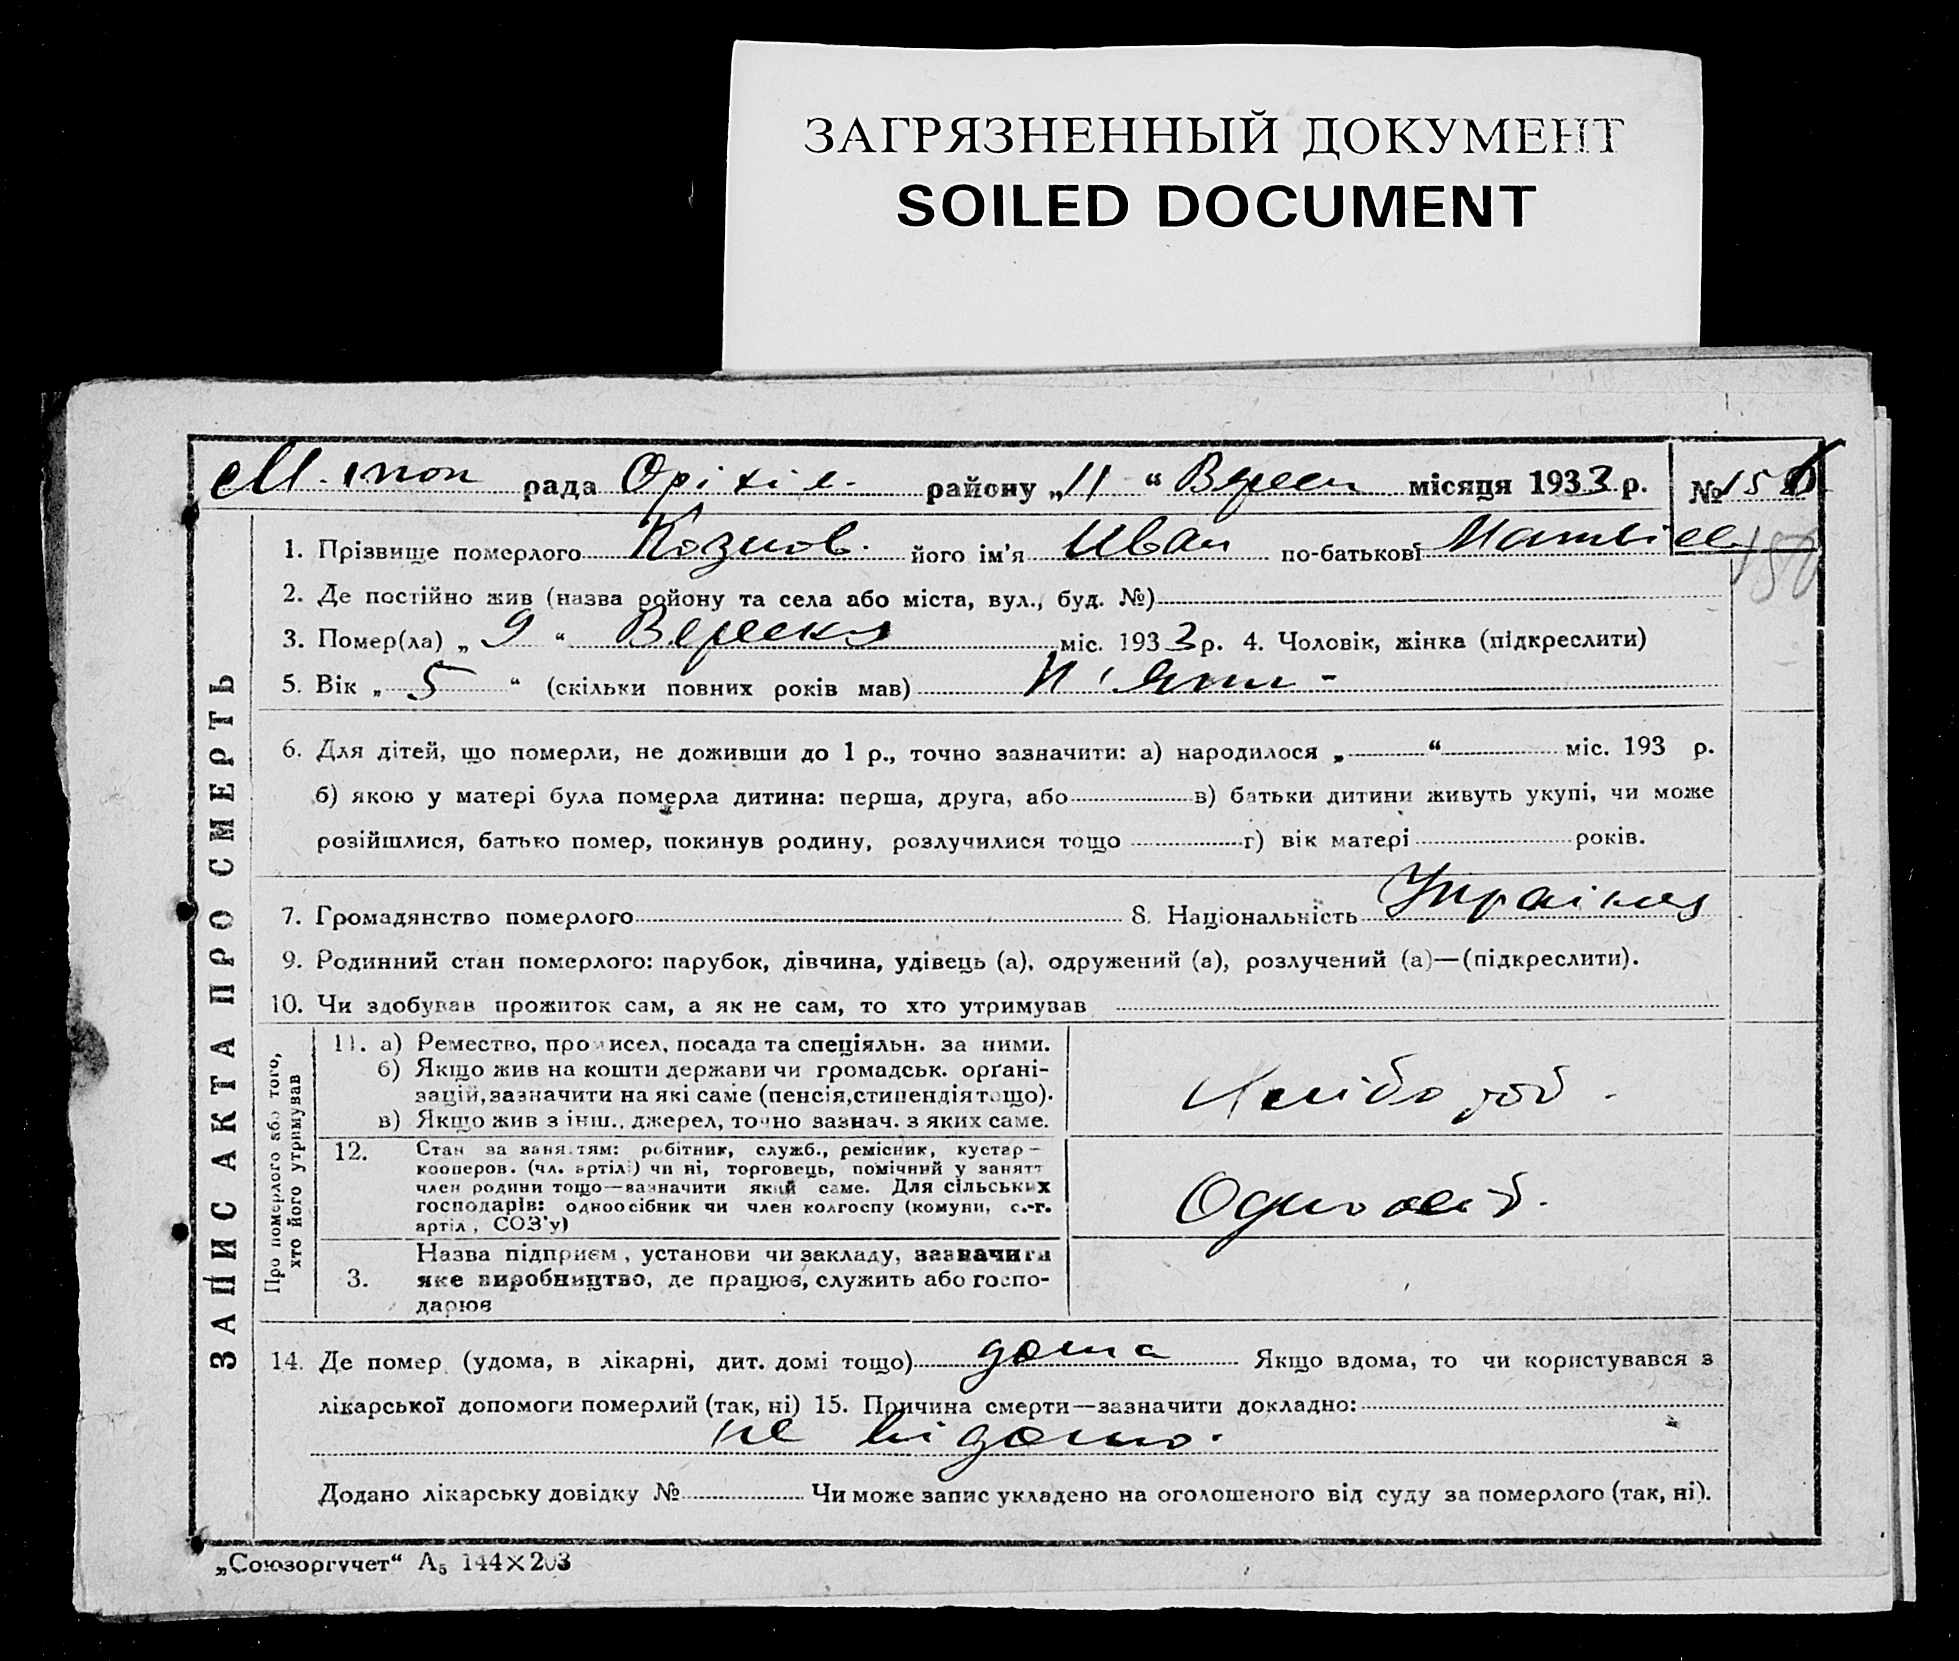 ЗАГРЯЗНЕННЫЙ ДОКУМЕНТ
SOILED DOCUMENT
рада Оріхів. району „11“ Вересн місяця 1933 р. №
1. Прізвище померлого його ім'я Иван по-батькові
2. Де постійно жив (назва району та села або міста, вул., буд. №)
3. Помер(ла) „9“ Вересня міс. 1933 р. 4. Чоловік, жінка (підкреслити)
5. Вік „5“ (скільки повних років мав) п'ять -
6. Для дітей, що померли, не доживши до 1 р., точно зазначити: а) народилося „ “ міс. 193 р.
б) якою у матері була померла дитина: перша, друга, або в) батьки дитини живуть укупі, чи може
розійшлися, батько помер, покинув родину, розлучилися тощо г) вік матері років.
7. Громадянство померлого 8. Національність
9. Родинний стан померлого: парубок, дівчина, удівець (а), одружений (а), розлучений (а)—(підкреслити).
10. Чи здобував прожиток сам, а як не сам, то хто утримував
11. а) Ремество, промисел, посада та спеціяльн. за ними.
б) Якщо жив на кошти держави чи громадськ. орґані-
зацій, зазначити на які саме (пенсія, стипендія тощо).
в) Якщо жив з інш., джерел, точно зазнач. з яких саме.
Хлібороб.
12. Стан за заняттям: робітник, служб., ремісник, кустар—
кооперов. (чл. артілі) чи ні, торговець, помічний у занятт
член родини тощо—зазначити який саме. Для сільських
господарів: одноосібник чи член колгоспу (комуни, с.-г.
артіл, СОЗ'у)
Одноосіб.
3. Назва підприєм, установи чи закладу, зазначити
яке виробництво, де працює, служить або госпо-
дарює
14. Де помер (удома, в лікарні, дит. домі тощо) дома Якщо вдома, то чи користувався з
лікарської допомоги померлий (так, ні) 15. Причина смерти—зазначити докладно:
не відомо.
Додано лікарську довідку № Чи може запис укладено на оголошеного від суду за померлого (так, ні).
„Союзоргучет“ А₅ 144×203
ЗАПИС АКТА ПРО СМЕРТЬ
Про померлого або того,
хто його утримував